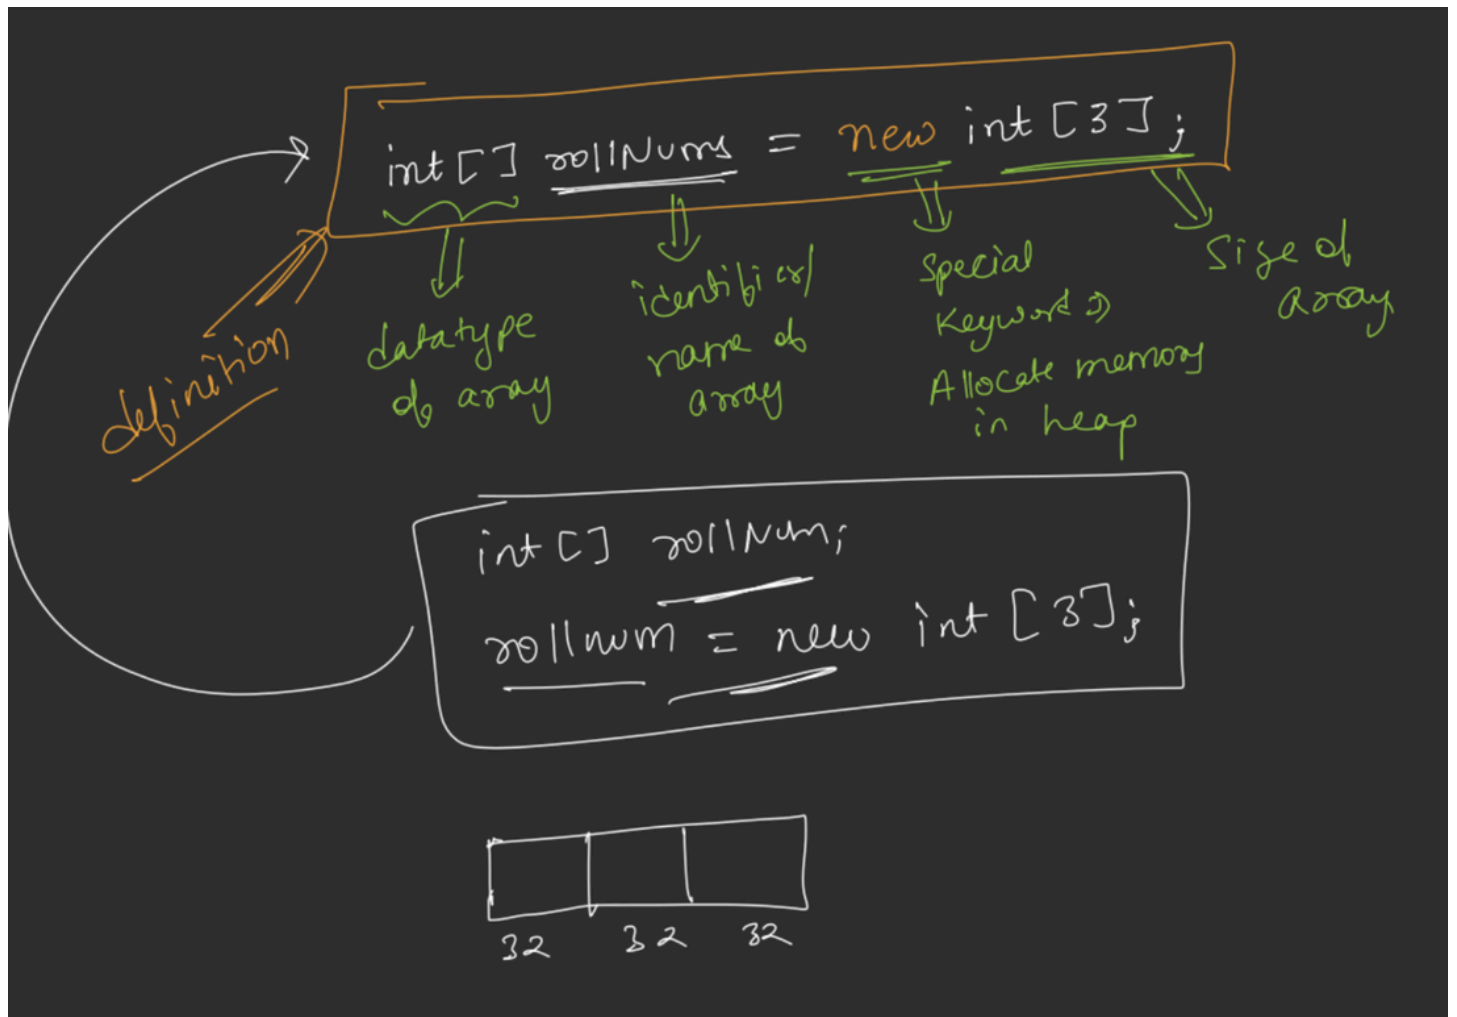 int[] rollNums = new int[3];
definition
datatype
of array
identifier/
name of
array
Special
Keyword
Allocate memory
in heap
Size of
array
int[] rollNum;
rollnum = new int[3];
32 32 32